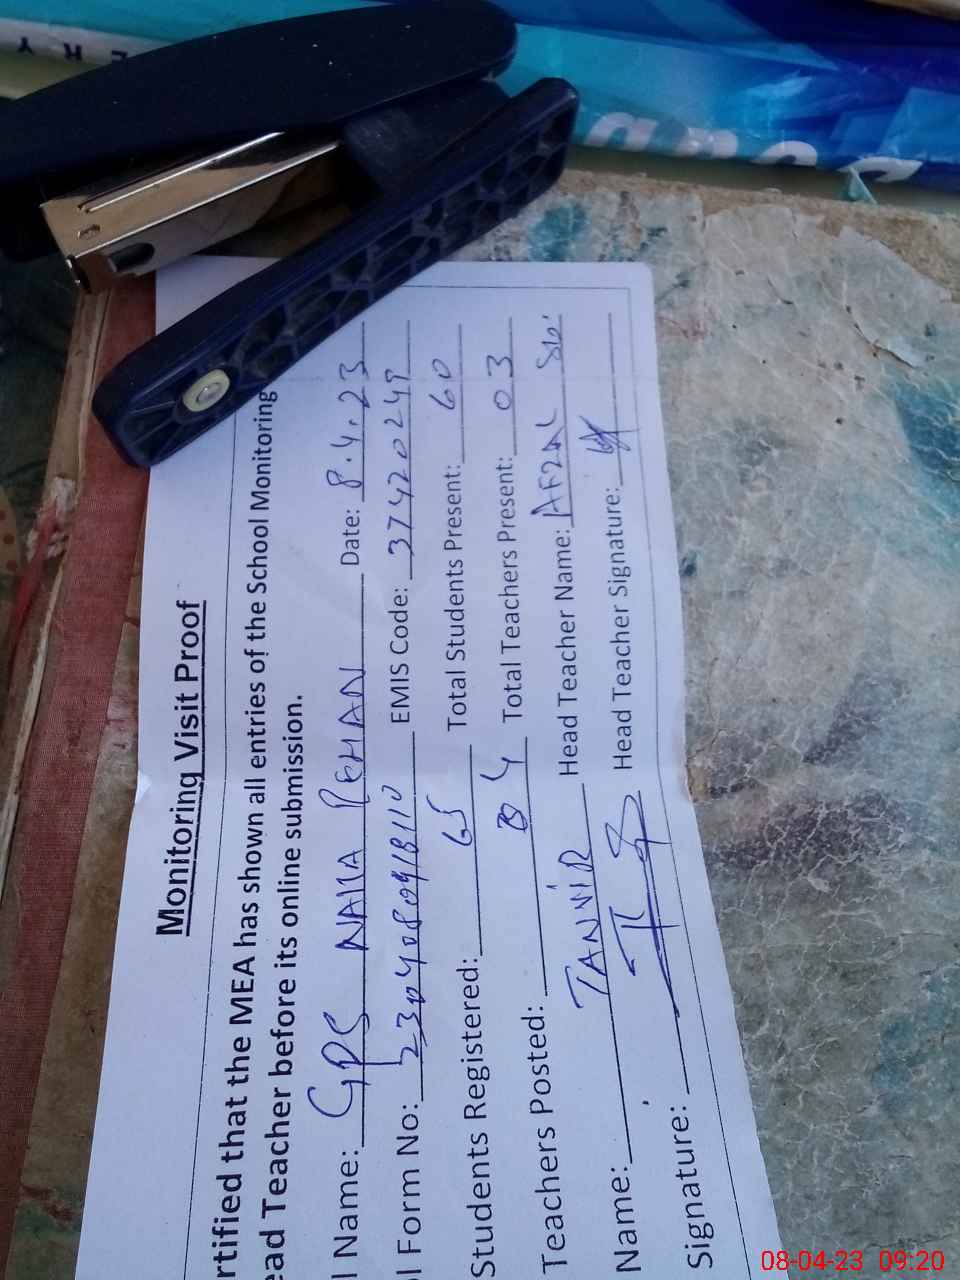 Monitoring Visit Proof
rtified that the MEA has shown all entries of the School Monitoring
ead Teacher before its online submission.
l Name: GPS NAKKA REHAN Date: 8.4.23
l Form No: EMIS Code: 37420249
Students Registered: 65 Total Students Present: 60
Teachers Posted: 04 Total Teachers Present: 03
Name: TANVIR Head Teacher Name: AFZAL
Signature: Head Teacher Signature:
08-04-23 09:20